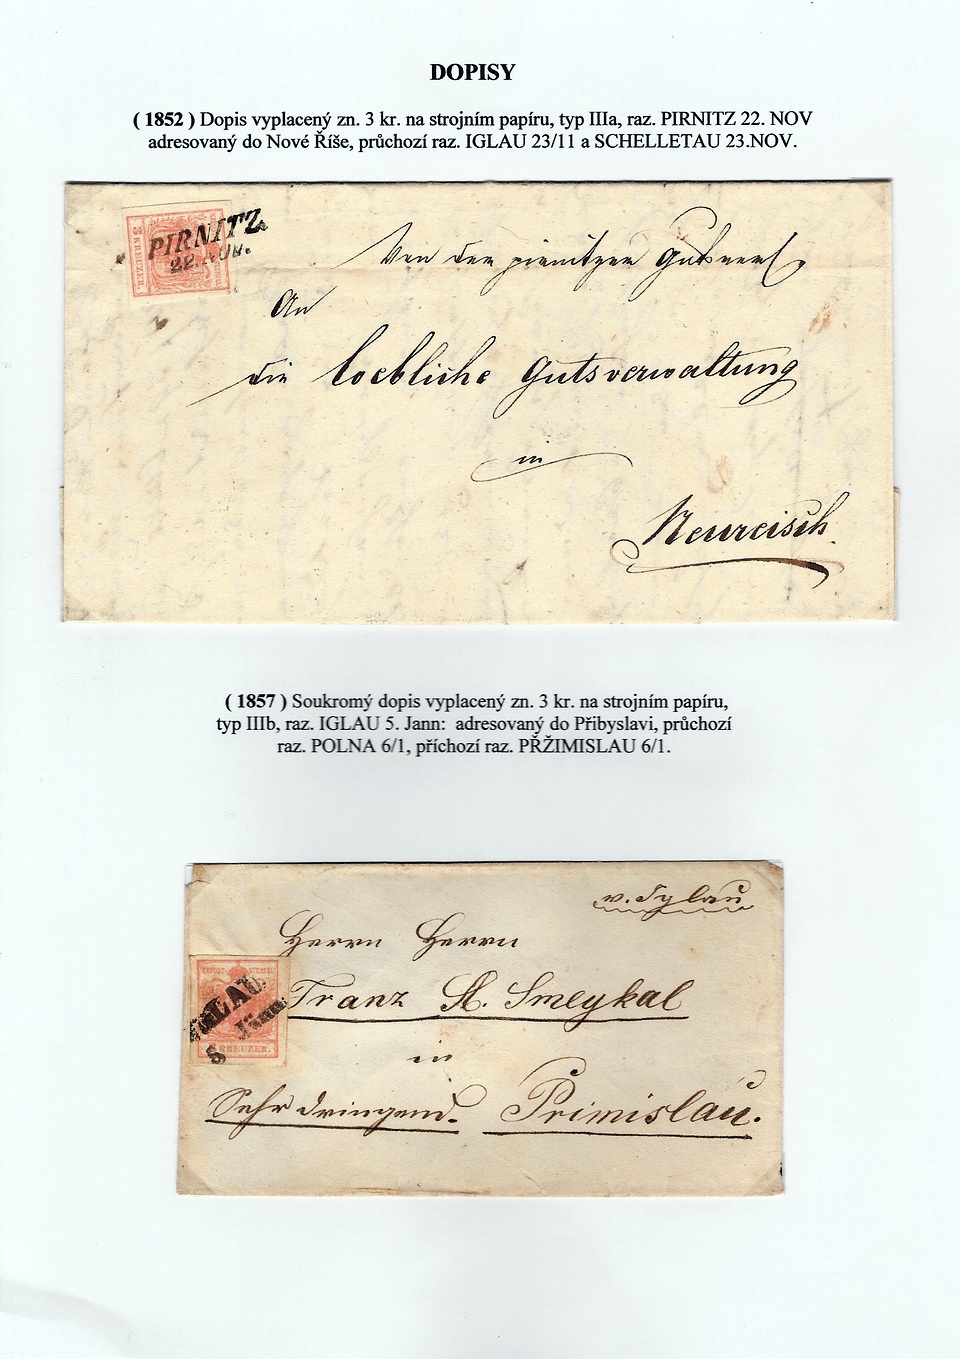 DOPISY
( 1852 ) Dopis vyplacený zn. 3 kr. na strojním papíru, typ IIIa, raz. PIRNITZ 22. NOV
adresovaný do Nové Říše, průchozí raz. IGLAU 23/11 a SCHELLETAU 23.NOV.
PIRNITZ
22.
3 KREUZER.
Von der pirnitzer
An
die loebliche Gutsverwaltung
in
Neureisch.
( 1857 ) Soukromý dopis vyplacený zn. 3 kr. na strojním papíru,
typ IIIb, raz. IGLAU 5. Jann: adresovaný do Přibyslavi, průchozí
raz. POLNA 6/1, příchozí raz. PŘŽIMISLAU 6/1.
v. Iglau
Herrn Herrn
IGLAU
Franz A. Smeykal
KREUZER.
in
Sehr dringend. Primislau.